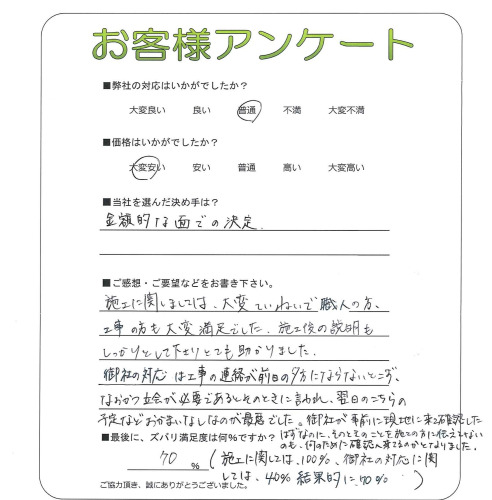 お客様アンケート
■弊社の対応はいかがでしたか?
大変良い 良い 普通 不満 大変不満
■価格はいかがでしたか?
大変安い 安い 普通 高い 大変高い
■当社を選んだ決め手は?
金額的な面での決定.
■ご感想・ご要望などをお書き下さい。
施工に関しましては、大変ていねいで職人の方、
工事の方も大変満足でした。施工後の説明も
しっかりとして下さりとても助かりました。
御社の対応は工事の連絡が前日の夕方にならないとこず、
なおかつ立会が必要であるとそのときに言われ、翌日のこちらの
予定などおかまいなしなのが最悪でした。御社が事前に現地に来て確認した
はずなのに、そのときのことを施工の方に伝えてない
のも、何のために確認に来てるのかとなりました。
■最後に、ズバリ満足度は何%ですか?
70 % (施工に関しては、100%、御社の対応に関
しては、40% 結果的に70%)
ご協力頂き、誠にありがとうございました。